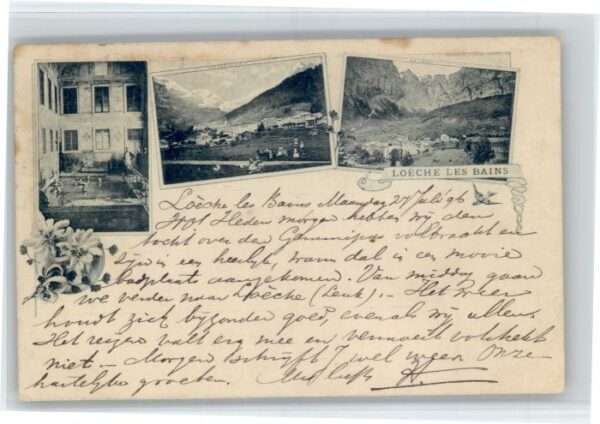 LOËCHE LES BAINS
Loëche les Bains Maandag 27 Juli 96
Heden morgen hebben wij den
tocht over da Gemmipas volbracht en
zijn in een heerlijk, warm dal in een mooie
badplaats aangekomen. Van middag gaan
we verder naar Loëche (Leuk). – Het weer
houdt zich bijzonder goed, evenals wij allen.
Het regen valt erg mee en vermoeit volstrekt
niet. – Morgen schrijft wel weer Onze
hartelijke groeten.